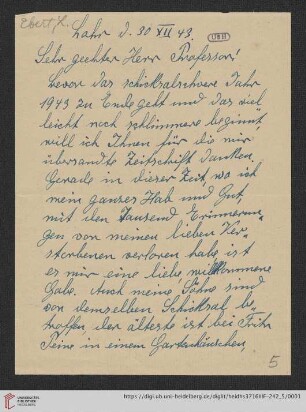 Ebert, K.
Lahr d. 30 XII 43.
Sehr geehrter Herr Professor!
bevor das schicksalschwere Jahr
1943 zu Ende geht und das viel
leicht noch schlimmere beginnt
will ich Ihnen für die mir
übersandte Zeitschrift danken.
Gerade in dieser Zeit, wo ich
mein ganzes Hab und Gut,
mit den Tausend Erinnerun
gen von meinen lieben Ver-
storbenen verloren habe, ist
es mir eine liebe willkommene
Gabe. Auch meine Söhne sind
von demselben Schicksal be-
troffen der älteste ist bei Fritz
Peine in einem Gartenhäuschen,
5
UNIVERSITÄTS-
BIBLIOTHEK
HEIDELBERG
https://digi.ub.uni-heidelberg.de/diglit/heidhs3716IIIF-242_5/0001